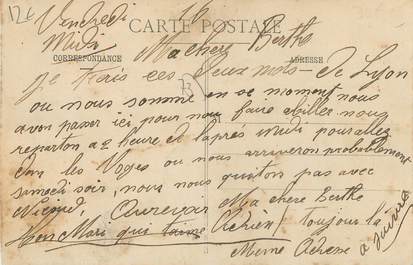 12c
Vendredi 16
CARTE POSTALE
Midi
Ma chere Berthe
CORRESPONDANCE
ADRESSE
Je fais ces deux mots de Lyon
ou nous somme en se moment nous
avon passer ici pour nou faire abiller nous
reparton a 2 heure et l'apres midi pour allez
dans les Voges ou nous arriveron probablement
samedi soir, nous nous quiton pas avec
Nicoud, Aurevoir Ma chere Berthe
Ton Mari qui t'aime Adrien / toujour la
Meme Adresse
a suivre